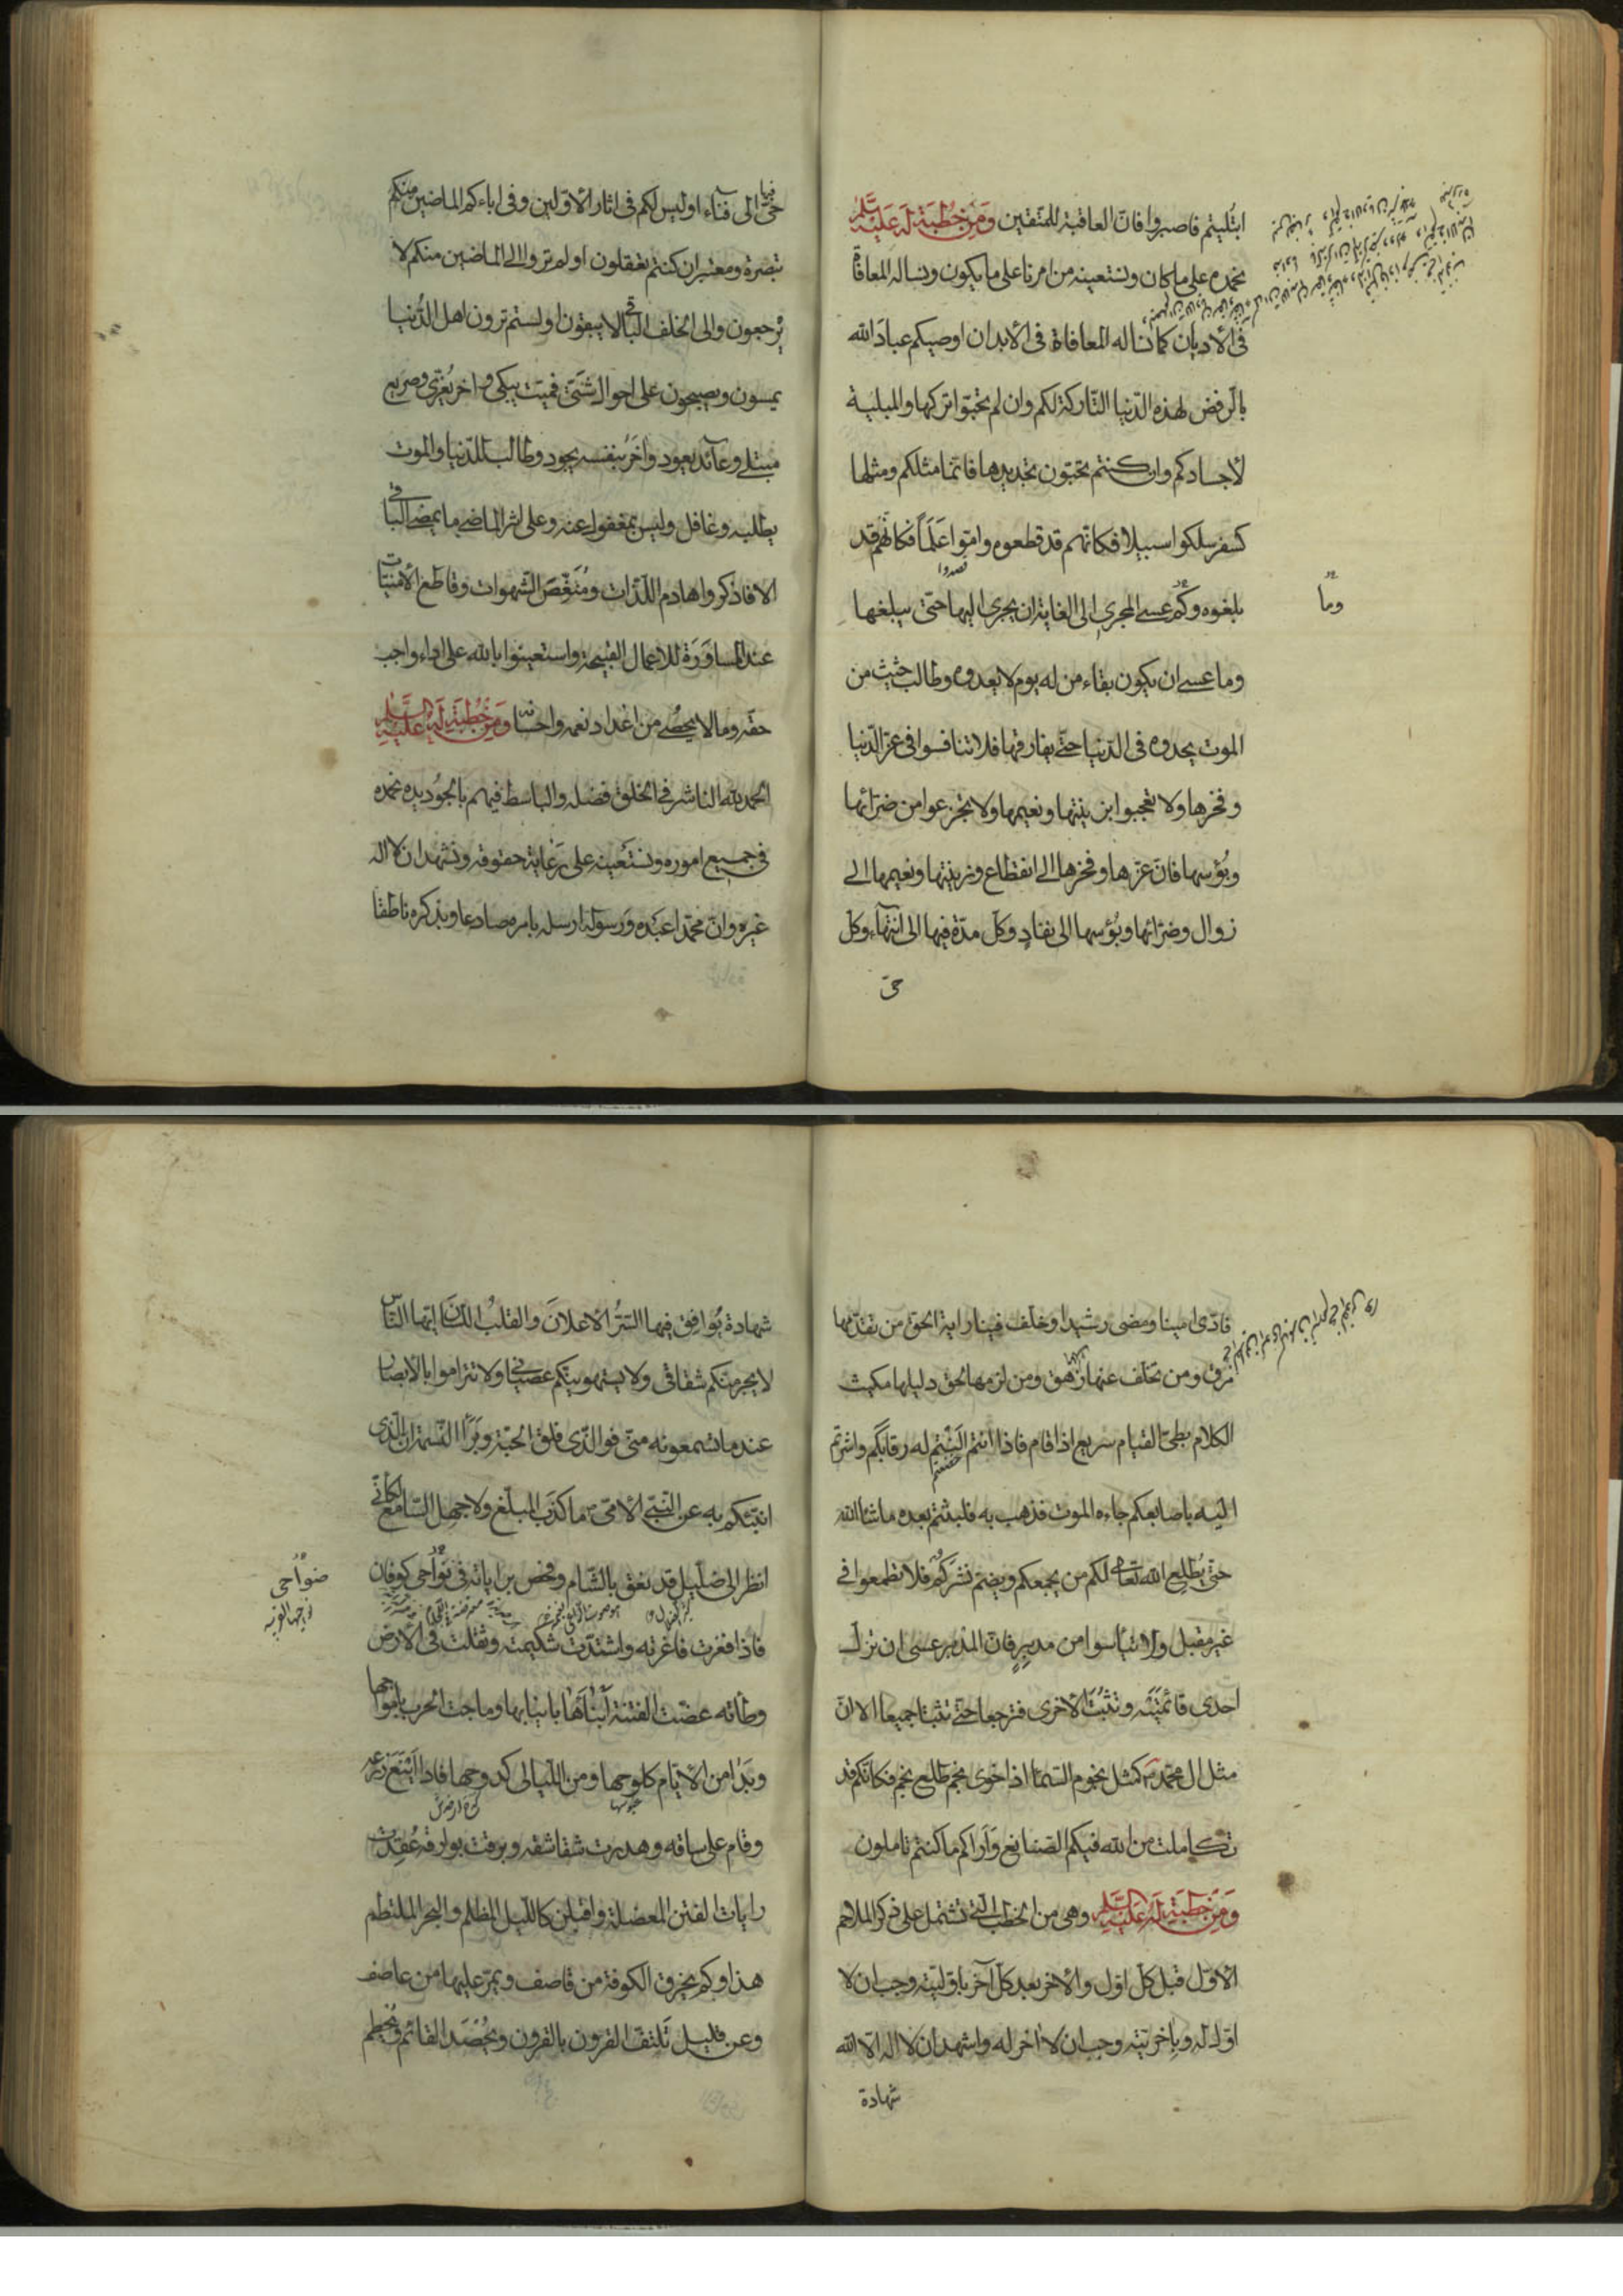 ابتليتم فاصبروا فان العاقبة للمتقين ومن خطبة له عليه السلم
نحمده على ما كان ونستعينه من امرنا على ما يكون ونساله المعافاة
في الأديان كما نساله المعافاة في الأبدان اوصيكم عباد الله
بالرفض لهذه الدنيا التاركة لكم وان لم تحبوا تركها والمبلية
لأجسادكم وان كنتم تحبون تجديدها فانما مثلكم ومثلها
كسفر سلكوا سبيلا فكانهم قد قطعوه واموا علما فكانهم قد
قصدوا
بلغوه وكم عسى المجري الى الغاية ان يجري اليها حتى يبلغها
وما
وما عسى ان يكون بقاء من له يوم لا يعدوه وطالب حثيث من
الموت يحدوه في الدنيا حتى يفارقها فلا تنافسوا في عز الدنيا
وفخرها ولا تعجبوا بزينتها ونعيمها ولا تجزعوا من ضرائها
وبؤسها فان عزها وفخرها الى انقطاع وزينتها ونعيمها الى
زوال وضرائها وبؤسها الى نفاد وكل مدة فيها الى انتهاء وكل
حي
حي فيها الى فناء اوليس لكم في اثار الأولين وفي اباءكم الماضين منكم
تبصرة ومعتبر ان كنتم تعقلون اولم تروا الى الماضين منكم لا
يرجعون والى الخلف الباقي لا يبقون اولستم ترون اهل الدنيا
يمسون ويصبحون على احوال شتى فميت يبكى واخر يعزى وصريع
مبتلى وعائد يعود واخر بنفسه يجود وطالب للدنيا والموت
يطلبه وغافل وليس بمغفول عنه وعلى اثر الماضي ما يمضي الباقي
الا فاذكروا هادم اللذات ومنغص الشهوات وقاطع الأمنيات
عند المساورة للاعمال القبيحة واستعينوا بالله على اداء واجب
حقه وما لا يحصى من اعداد نعمه واحسانه ومن خطبة له عليه السلم
الحمد لله الناشر في الخلق فضله والباسط فيهم بالجود يده نحمده
في جميع اموره ونستعينه على رعاية حقوقه ونشهد ان لا اله
غيره وان محمدا عبده ورسوله ارسله بامره صادعا وبذكره ناطقا
فادى امينا ومضى رشيدا وخلف فينا راية الحق من تقدمها
مرق ومن تخلف عنها زهق ومن لزمها لحق دليلها مكيث
الكلام بطئ القيام سريع اذا قام فاذا انتم النتم له رقابكم واشرتم
اليه باصابعكم جاءه الموت فذهب به فلبثتم بعده ما شاء الله
حتى يطلع الله تعالى لكم من يجمعكم ويضم نشركم فلا تطمعوا في
غير مقبل ولا تيأسوا من مدبر فان المدبر عسى ان تزل
احدى قائمتيه وتثبت الأخرى فترجعا حتى تثبتا جميعا الا ان
مثل ال محمد كمثل نجوم السماء اذا خوى نجم طلع نجم فكانكم قد
تكاملت من الله فيكم الصنايع واراكم ما كنتم تاملون
ومن خطبة له عليه السلم وهي من الخطب التي تشتمل على ذكر الملاحم
الأول قبل كل اول والأخر بعد كل آخر باوليته وجب ان لا
اول له وباخريته وجب ان لا اخر له واشهد ان لا اله الا الله
شهادة
شهادة يوافق فيها السر الأعلان والقلب اللسان ايها الناس
لا يجرمنكم شقاقي ولا يستهوينكم عصياني ولا تتراموا بالأبصار
عند ما تسمعونه مني فوالذي فلق الحبة وبرأ النسمة ان الذي
انبئكم به عن النبي الأمي ما كذب المبلغ ولا جهل السامع لكاني
انظر الى ضليل قد نعق بالشام وفحص براياته في نواحي كوفان
ضواحي
فاذا فغرت فاغرته واشتدت شكيمته وثقلت في الأرض
وطأته عضت الفتنة ابناءها بانيابها وماجت الحرب بامواجها
وبدا من الأيام كلوحها ومن الليالى كدوحها فاذا اينع زرعه
عبوسها
وقام على ساقه وهدرت شقاشقه وبرقت بوارقه عقدت
رايات الفتن المعضلة واقبلن كالليل المظلم والبحر الملتطم
هذا وكم يخرق الكوفة من قاصف ويمر عليها من عاصف
وعن قليل تلتف القرون بالقرون ويحصد القائم ويحطم